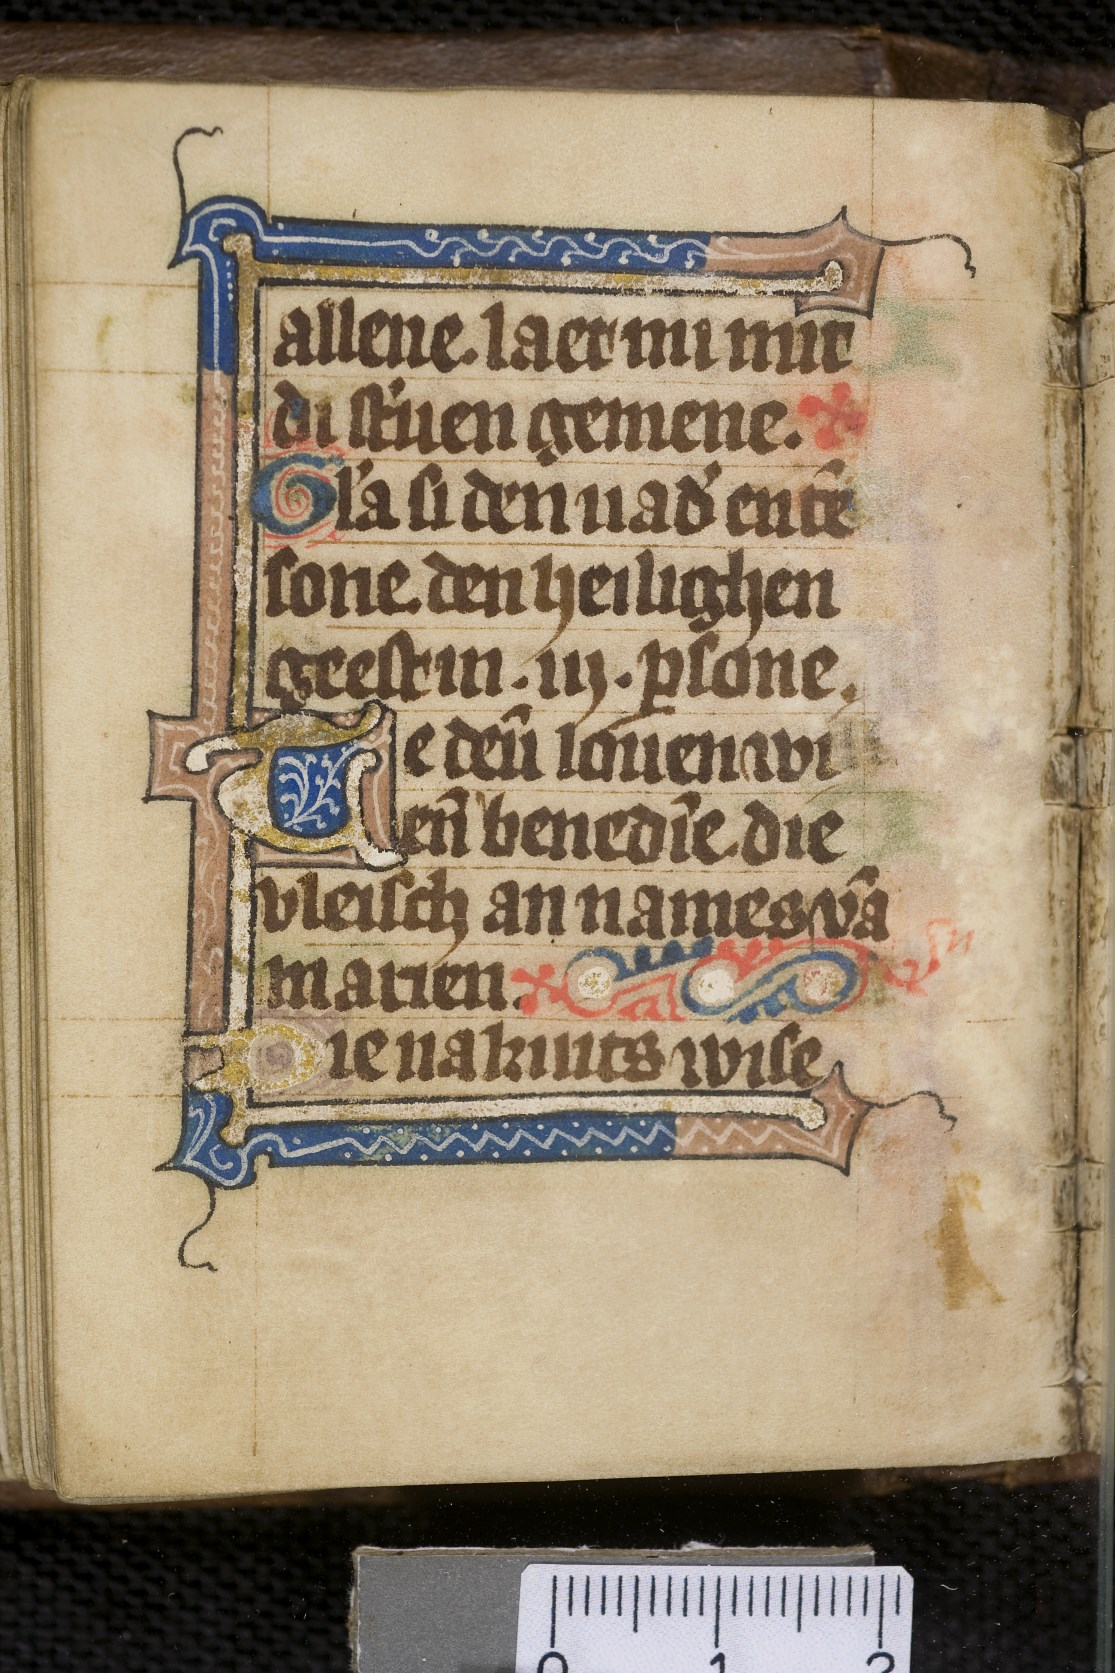 allene. laet mi mit
di st'uen gemene.
Gl'a si den uad' en te᷒
sone. den heilighen
geest in . iij . ꝑsone.
Te deū louen wi
en̄ benedīe. die
vleisch an names vā
marien. su
Die na kints wise
0 1 2